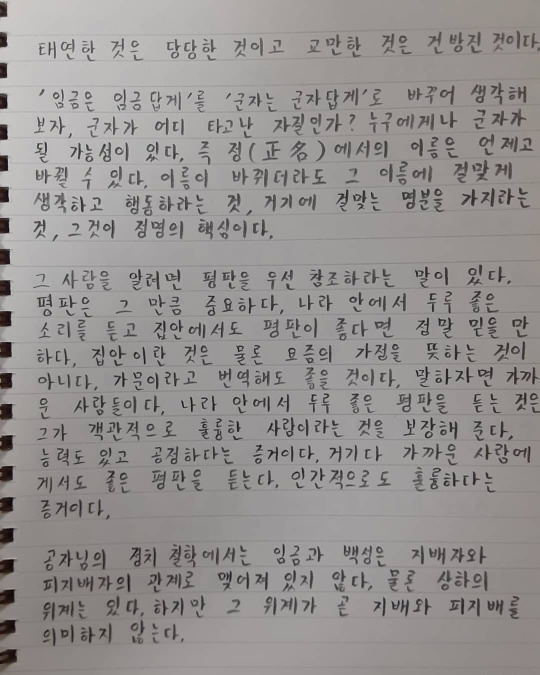 태연한 것은 당당한 것이고 교만한 것은 건방진 것이다.
'임금은 임금답게'를 '군자는 군자답게'로 바꾸어 생각해
보자, 군자가 어디 타고난 자질인가? 누구에게나 군자가
될 가능성이 있다. 즉 정(正名)에서의 이름은 언제고
바뀔 수 있다. 이름이 바뀌더라도 그 이름에 걸맞게
생각하고 행동하라는 것, 거기에 걸맞는 명분을 가지라는
것, 그것이 정명의 핵심이다.
그 사람을 알려면 평판을 우선 참조하라는 말이 있다.
평판은 그 만큼 중요하다. 나라 안에서 두루 좋은
소리를 듣고 집안에서도 평판이 좋다면 정말 믿을 만
하다. 집안이란 것은 물론 요즘의 가정을 뜻하는 것이
아니다. 가문이라고 번역해도 좋을 것이다. 말하자면 가까
운 사람들이다. 나라 안에서 두루 좋은 평판을 듣는 것은
그가 객관적으로 훌륭한 사람이라는 것을 보장해 준다.
능력도 있고 공정하다는 증거이다. 거기다 가까운 사람에
게서도 좋은 평판을 듣는다. 인간적으로도 훌륭하다는
증거이다.
공자님의 정치 철학에서는 임금과 백성은 지배자와
피지배자의 관계로 맺어져 있지 않다. 물론 상하의
위계는 있다. 하지만 그 위계가 곧 지배와 피지배를
의미하지 않는다.